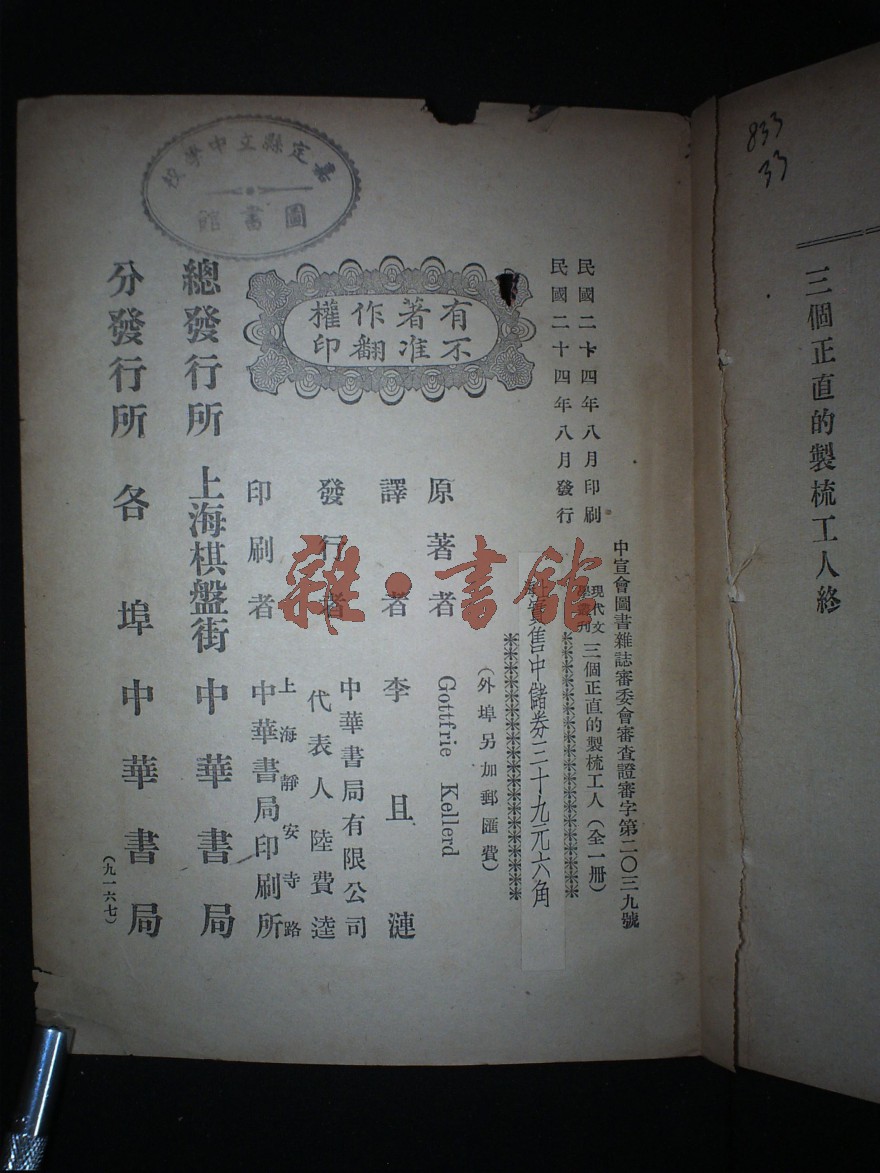 833
33
三個正直的製梳工人終
中宣會圖書雜誌審委會審查證審字第二〇三九號
現代文
學叢刊
三個正直的製梳工人(全一冊)
民國二十四年八月印刷
民國二十四年八月發行
實售中儲券三十九元六角
(外埠另加郵匯費)
有著作權
不准翻印
原著者 Gottfrie Kellerd
譯者 李且漣
發行者 中華書局有限公司
代表人 陸費逵
印刷者 上海靜安寺路
中華書局印刷所
總發行所 上海棋盤街 中華書局
分發行所 各埠中華書局
(九一六七)
嘉定縣立中學校
圖書館
雜·書館